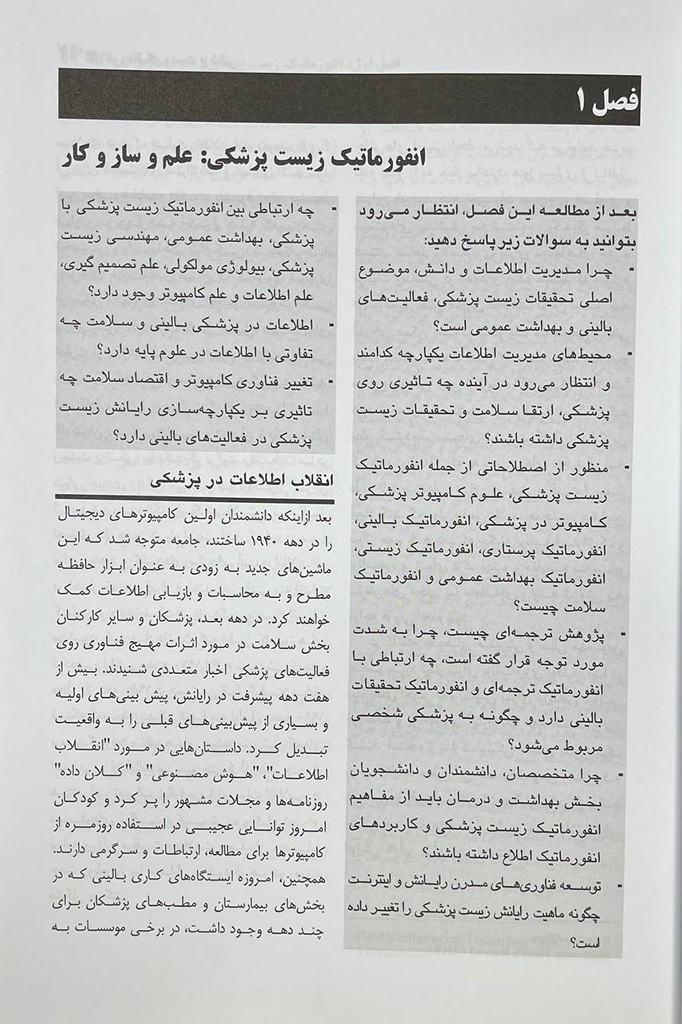 فصل ۱
انفورماتیک زیست پزشکی: علم و ساز و کار
بعد از مطالعه این فصل، انتظار می‌رود
بتوانید به سوالات زیر پاسخ دهید:
- چرا مدیریت اطلاعات و دانش، موضوع
اصلی تحقیقات زیست پزشکی، فعالیت‌های
بالینی و بهداشت عمومی است؟
- محیط‌های مدیریت اطلاعات یکپارچه کدامند
و انتظار می‌رود در آینده چه تاثیری روی
پزشکی، ارتقا سلامت و تحقیقات زیست
پزشکی داشته باشند؟
- منظور از اصطلاحاتی از جمله انفورماتیک
زیست پزشکی، علوم کامپیوتر پزشکی،
کامپیوتر در پزشکی، انفورماتیک بالینی،
انفورماتیک پرستاری، انفورماتیک زیستی،
انفورماتیک بهداشت عمومی و انفورماتیک
سلامت چیست؟
- پژوهش ترجمه‌ای چیست، چرا به شدت
مورد توجه قرار گفته است، چه ارتباطی با
انفورماتیک ترجمه‌ای و انفورماتیک تحقیقات
بالینی دارد و چگونه به پزشکی شخصی
مربوط می‌شود؟
- چرا متخصصان، دانشمندان و دانشجویان
بخش بهداشت و درمان باید از مفاهیم
انفورماتیک زیست پزشکی و کاربردهای
انفورماتیک اطلاع داشته باشند؟
- توسعه فناوری‌های مدرن رایانش و اینترنت
چگونه ماهیت رایانش زیست پزشکی را تغییر داده
است؟
- چه ارتباطی بین انفورماتیک زیست پزشکی با
پزشکی، بهداشت عمومی، مهندسی زیست
پزشکی، بیولوژی مولکولی، علم تصمیم گیری،
علم اطلاعات و علم کامپیوتر وجود دارد؟
- اطلاعات در پزشکی بالینی و سلامت چه
تفاوتی با اطلاعات در علوم پایه دارد؟
- تغییر فناوری کامپیوتر و اقتصاد سلامت چه
تاثیری بر یکپارچه‌سازی رایانش زیست
پزشکی در فعالیت‌های بالینی دارد؟
انقلاب اطلاعات در پزشکی
بعد ازاینکه دانشمندان اولین کامپیوترهای دیجیتال
را در دهه ۱۹۴۰ ساختند، جامعه متوجه شد که این
ماشین‌های جدید به زودی به عنوان ابزار حافظه
مطرح و به محاسبات و بازیابی اطلاعات کمک
خواهند کرد. در دهه بعد، پزشکان و سایر کارکنان
بخش سلامت در مورد اثرات مهیج فناوری روی
فعالیت‌های پزشکی اخبار متعددی شنیدند. بیش از
هفت دهه پیشرفت در رایانش، پیش بینی‌های اولیه
و بسیاری از پیش‌بینی‌های قبلی را به واقعیت
تبدیل کرد. داستان‌هایی در مورد "انقلاب
اطلاعات"، "هوش مصنوعی" و "کلان داده"
روزنامه‌ها و مجلات مشهور را پر کرد و کودکان
امروز توانایی عجیبی در استفاده روزمره از
کامپیوترها برای مطالعه، ارتباطات و سرگرمی دارند.
همچنین، امروزه ایستگاه‌های کاری بالینی که در
بخش‌های بیمارستان و مطب‌های پزشکان برای
چند دهه وجود داشت، در برخی موسسات به